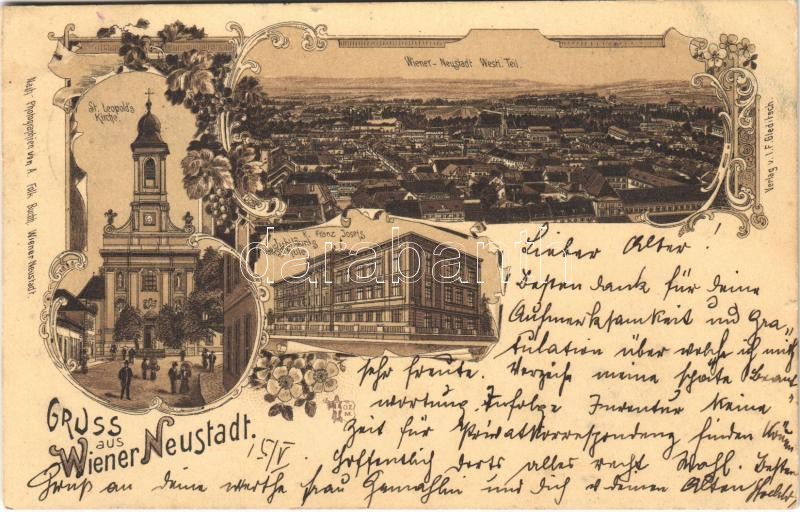 Wiener-Neustadt Westl. Teil.
St. Leopold's
Kirche.
Nach Photographien von A. Folk. Buchh. Wiener-Neustadt.
Verlag v. I. F. Gleditsch.
K. Franz Josefs
darabanth.com
GRUSS
aus
Wiener Neustadt.
15/V
Lieber Alter!
Besten dank für deine
Aufmerksamkeit und Gra„
tulation über welche ich mich
sehr freute. Verzeihe meine späte Beant„
wortung. Infolge Inventur keine
Zeit für Privatkorrespondenz finden können
Hoffentlich dorts alles recht Wohl. Besten
Gruß an deine werthe frau Gemahlin und dich v deinen Alten